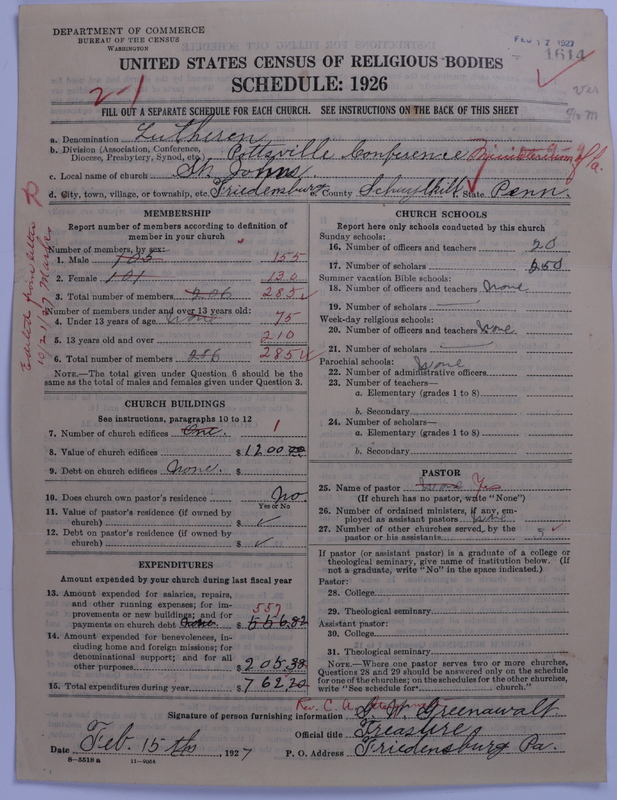 DEPARTMENT OF COMMERCE
BUREAU OF THE CENSUS
WASHINGTON
FEB 17 1927
1614
UNITED STATES CENSUS OF RELIGIOUS BODIES
SCHEDULE: 1926
2-1
FILL OUT A SEPARATE SCHEDULE FOR EACH CHURCH. SEE INSTRUCTIONS ON THE BACK OF THIS SHEET
a. Denomination Lutheren
b. Division (Association, Conference, Diocese, Presbytery, Synod, etc.) Pottsville Conference Ministerium of Pa.
c. Local name of church St Johns
d. City, town, village, or township, etc. Friedensburg e. County Schuylkill f. State Penn.
MEMBERSHIP
Report number of members according to definition of member in your church
Number of members, by sex:
1. Male 105 155
2. Female 101 130
3. Total number of members 206 285
Number of members under and over 13 years old:
4. Under 13 years of age None 75
5. 13 years old and over 210
6. Total number of members 206 285
NOTE.—The total given under Question 6 should be the same as the total of males and females given under Question 3.
CHURCH BUILDINGS
See instructions, paragraphs 10 to 12
7. Number of church edifices One. 1
8. Value of church edifices $ 1200
9. Debt on church edifices None. $
10. Does church own pastor's residence No
Yes or No
11. Value of pastor's residence (if owned by church) $ ✓
12. Debt on pastor's residence (if owned by church) $ ✓
EXPENDITURES
Amount expended by your church during last fiscal year
13. Amount expended for salaries, repairs, and other running expenses; for improvements or new buildings; and for payments on church debt $ 556.82
557
14. Amount expended for benevolences, including home and foreign missions; for denominational support; and for all other purposes $ 205.38
15. Total expenditures during year $ 762.20
CHURCH SCHOOLS
Report here only schools conducted by this church
Sunday schools:
16. Number of officers and teachers 20
17. Number of scholars 250
Summer vacation Bible schools:
18. Number of officers and teachers None
19. Number of scholars
Week-day religious schools:
20. Number of officers and teachers None
21. Number of scholars
Parochial schools: None
22. Number of administrative officers
23. Number of teachers—
a. Elementary (grades 1 to 8)
b. Secondary
24. Number of scholars—
a. Elementary (grades 1 to 8)
b. Secondary
PASTOR
25. Name of pastor None Yes
(If church has no pastor, write "None")
26. Number of ordained ministers, if any, employed as assistant pastors None
27. Number of other churches served by the pastor or his assistants
If pastor (or assistant pastor) is a graduate of a college or theological seminary, give name of institution below. (If not a graduate, write "No" in the space indicated.)
Pastor:
28. College
29. Theological seminary
Assistant pastor:
30. College
31. Theological seminary
NOTE.—Where one pastor serves two or more churches, Questions 28 and 29 should be answered only on the schedule for one of the churches; on the schedules for the other churches, write "See schedule for church."
Rev. C. A.
Signature of person furnishing information G. W. Greenawalt
Official title Treasure
Date Feb. 15th, 1927 P. O. Address Friedensburg Pa.
8—5518 a 11—9054